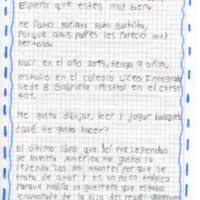 Espero que estes muy bien.
Me llamo Mariana Rojas Bautista,
Porque a mis padres les Parecio muy
hermoso.
Nací en el año 2015, tengo 9 años,
estudio en el colegio Liceo Integrado
sede B Gabriela Mistral en el curso
401.
Me gusta dibujar, leer y jugar basquet
¿qué te gusta hacer?
El último libro que leí fue Leyendas
de nuestra América, me gusto la
leyenda Los dos amantes por que se
trata de amor y es un poco trágica
porque había un guerrero que estaba
enamorado de la hija del rey